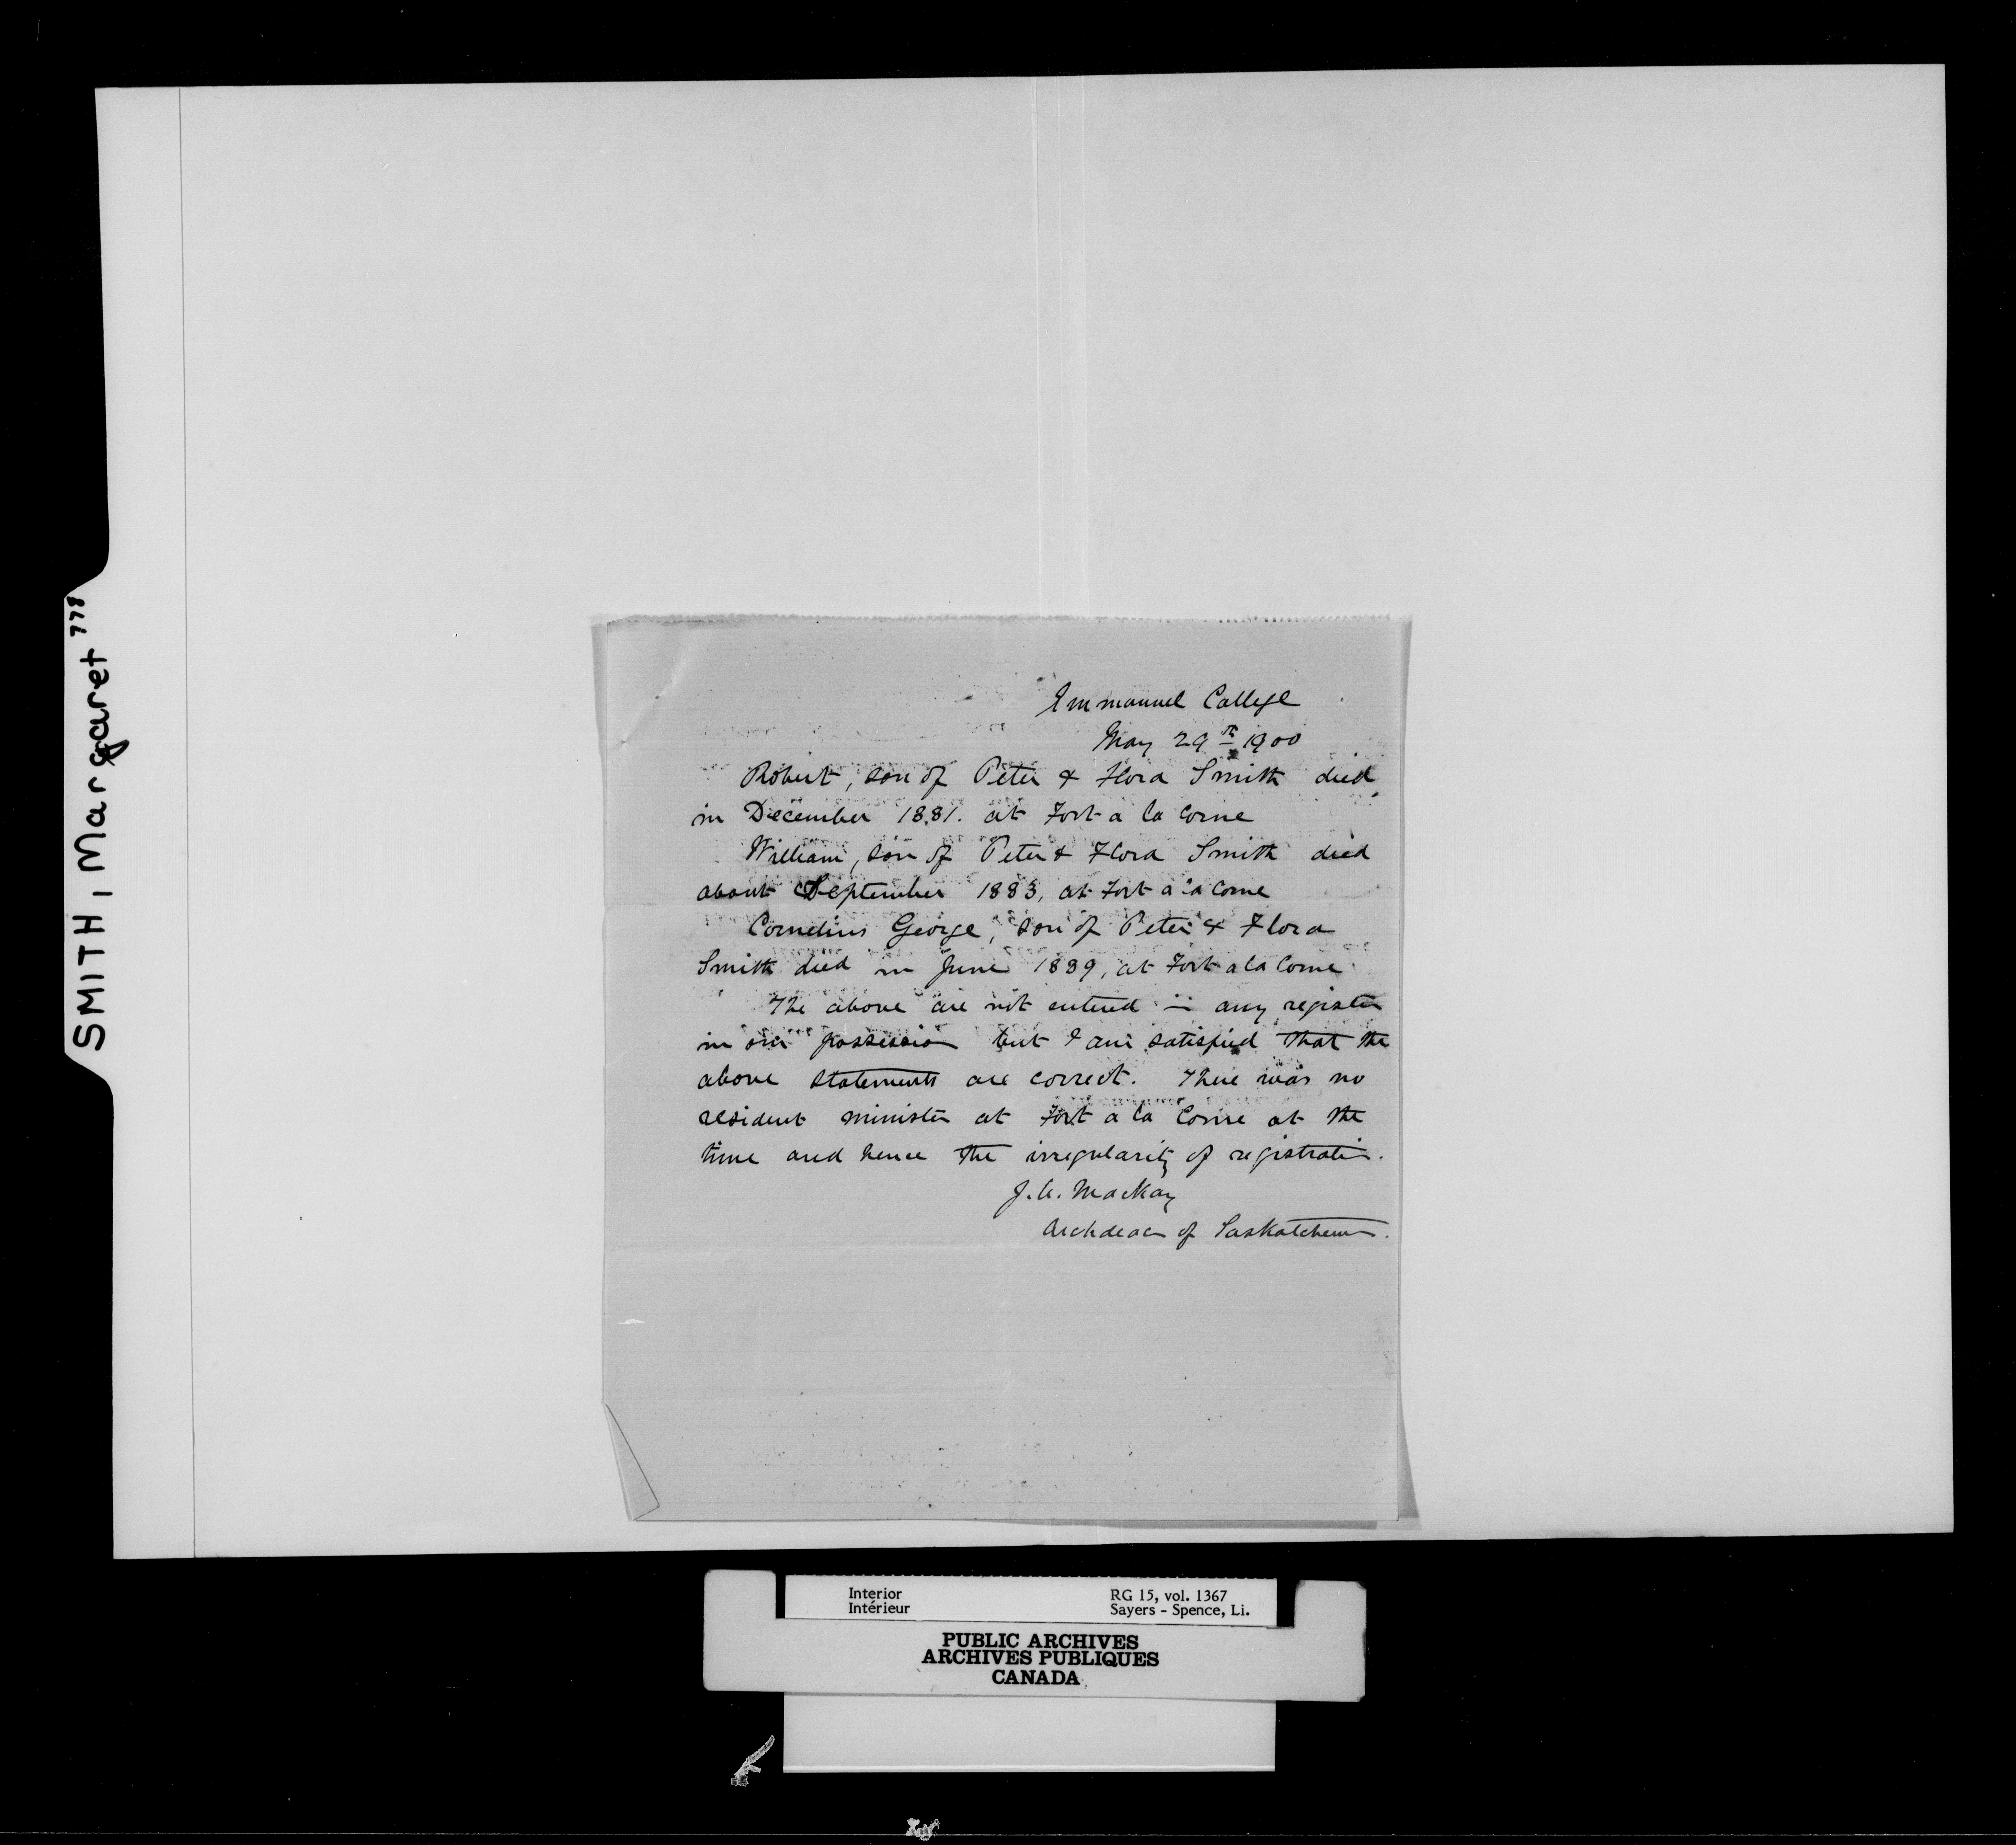 SMITH, Margaret 778
Immanuel College
May 29th 1900
Robert, son of Peter & Flora Smith died
in December 1881. at Fort a la Corne
William, son of Peter & Flora Smith died
about September 1883, at Fort a la Corne
Cornelius George, son of Peter & Flora
Smith died in June 1889, at Fort a la Corne
The above are not entered in any register
in our possession but I am satisfied that the
above statements are correct. There was no
resident minister at Fort a la Corne at the
time and hence the irregularity of registration.
J. A. MacKay
Archdeacon of Saskatchewan.
Interior RG 15, vol. 1367
Intérieur Sayers - Spence, Li.
PUBLIC ARCHIVES
ARCHIVES PUBLIQUES
CANADA